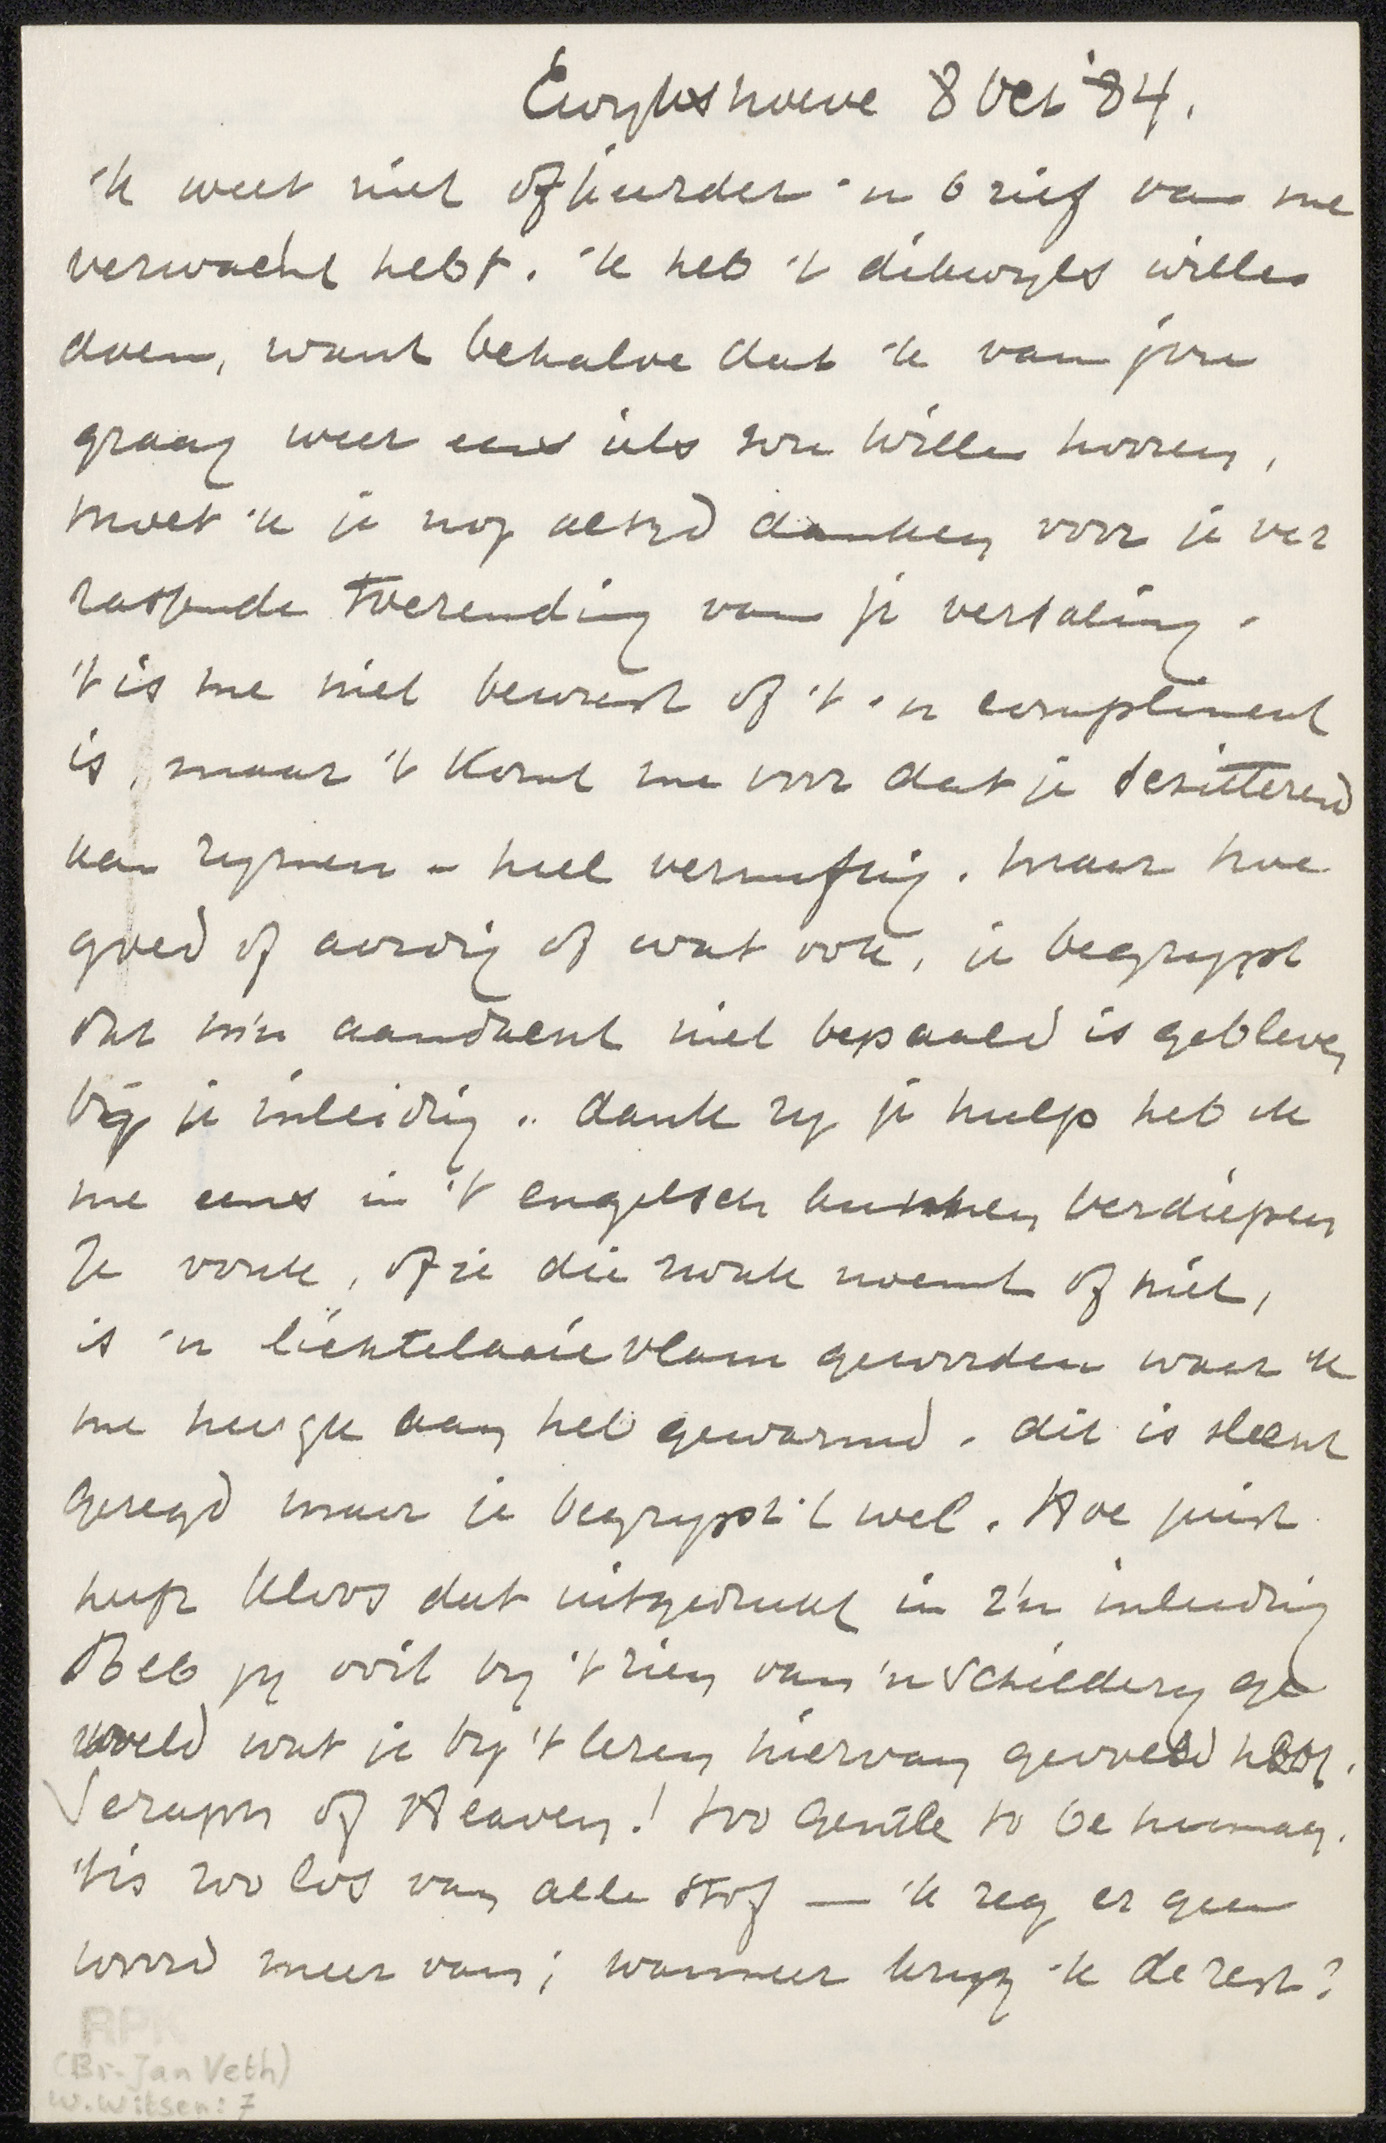 Ewijkshoeve 8 Oct '84.
'k weet niet of je eerder 'n brief van me
verwacht hebt. 'k heb 't dikwijls willen
doen, want behalve dat 'k van jou
graag weer eens iets zou willen hooren,
moet 'k je nog altijd danken voor je ver
rassende toezending van je vertaling.
't is me niet bewust of 't 'n compliment
is, maar 't komt me voor dat je schitterend
kan rijmen - heel vernuftig. maar hoe
goed of aardig of wat ook, je begrijpt
dat m'n aandacht niet bepaald is gebleven
bij je inleiding .. dank zij je hulp heb ik
me eens in 't engelsch kunnen verdiepen
Je vonk, of je die vonk noemt of niet,
is 'n lichtelaaie vlam geworden waar 'k
me heerlijk aan heb gewarmd. dit is slecht
gezegd maar je begrijpt 't wel. Hoe juist
heeft Kloos dat uitgedrukt in z'n inleiding
Heb jij ooit bij 't zien van 'n schilderij ge
voeld wat je bij 't lezen hiervan gevoeld hebt.
Seraph of Heaven! too gentle to be human.
't is zoo los van alle stof — 'k zeg er geen
woord meer van; wanneer krijg 'k de rest?
RPK
(Br. Jan Veth)
W. Witsen: 7